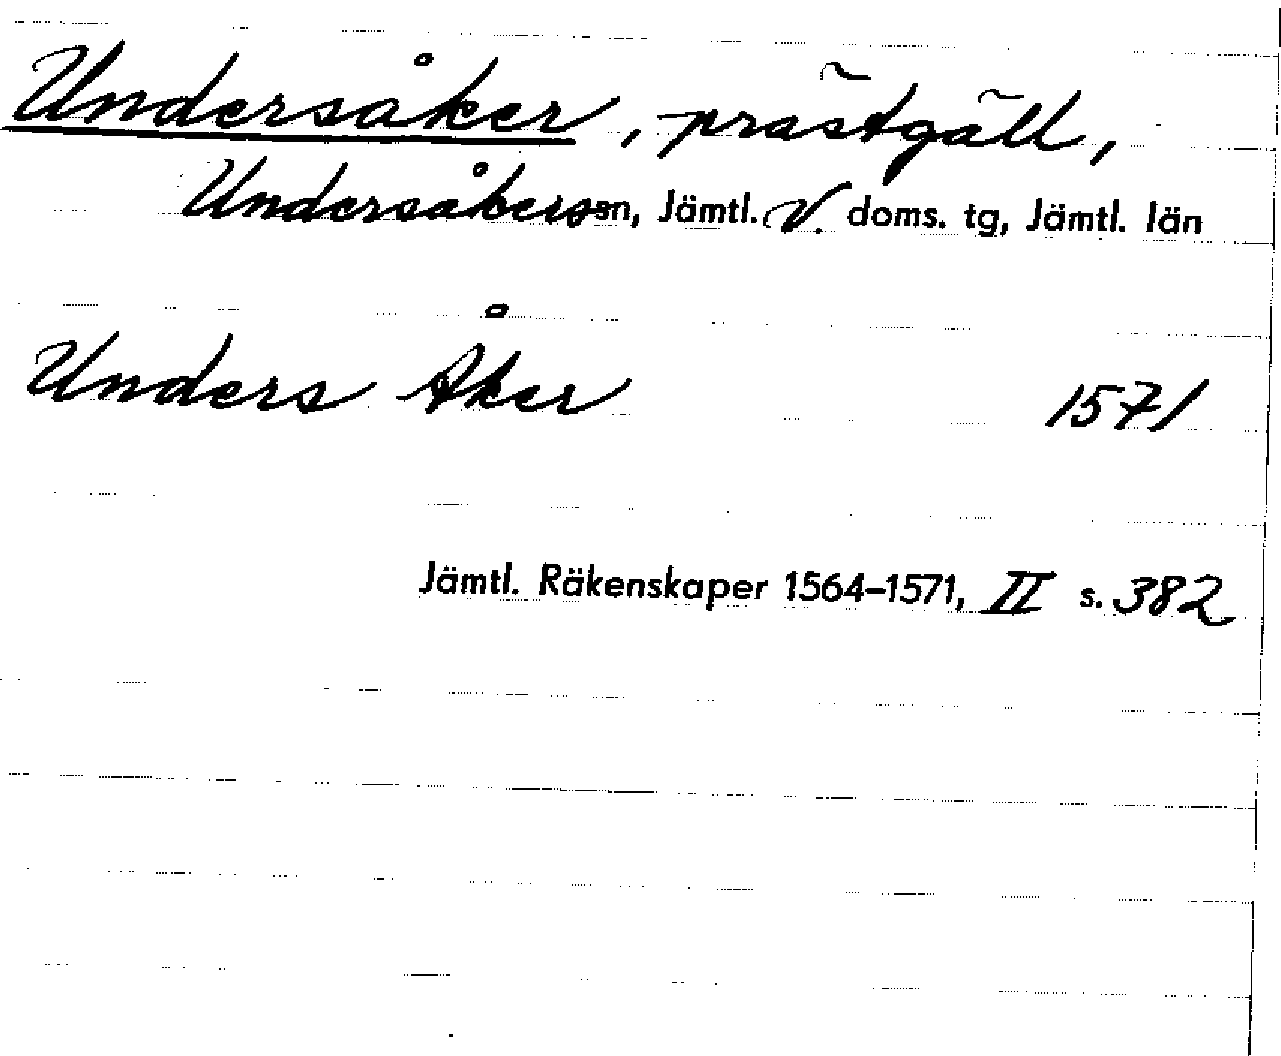 Undersåker, prästgäll,
Undersåkers sn, Jämtl. V. doms. tg, Jämtl. län
Unders Åker 1571
Jämtl. Räkenskaper 1564–1571, II s. 382